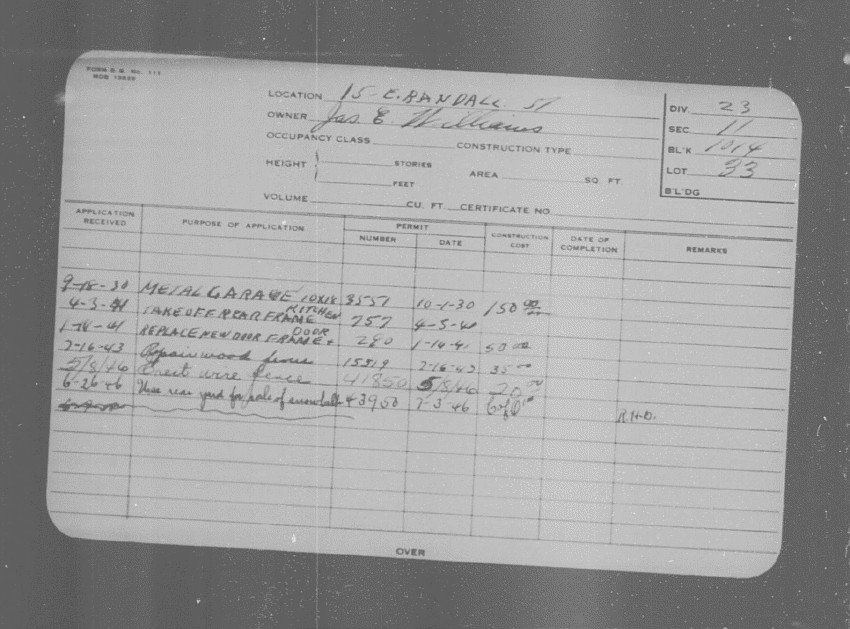 FORM B. B. No. 111
LOCATION 15- E. RANDALL ST
OWNER Jas E Williams
OCCUPANCY CLASS CONSTRUCTION TYPE
HEIGHT STORIES
FEET
AREA SQ. FT.
VOLUME CU. FT. CERTIFICATE NO.
DIV. 23
SEC. 11
BL'K 1014
LOT 33
B'L'DG
APPLICATION RECEIVED PURPOSE OF APPLICATION PERMIT NUMBER DATE CONSTRUCTION COST DATE OF COMPLETION REMARKS
9-18-30 METAL GARAGE 10X18 3557 10-1-30 150 00
4-3-41 TAKE OFF REAR FRAME KITCHEN 257
1-14-41 REPLACE NEW DOOR FRAME + DOOR 280 1-14-41 50 00
2-16-43 Repair wood fence 15319 2-16-43 35 00
5/8/46 Erect wire fence 41850 5/8/46 20 00
6-26-46 Use rear yard for sale of snowballs 43950 7-3-46 R.H.D.
OVER